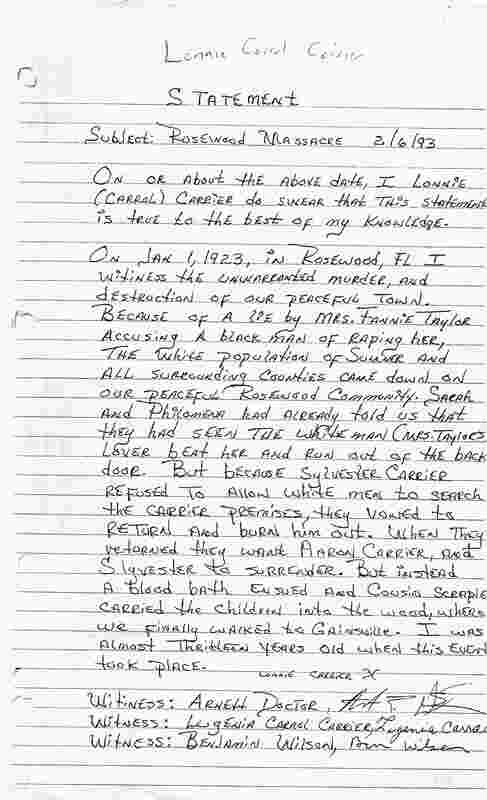 Lonnie Carrol Carrier
STATEMENT
Subject: Rosewood Massacre 2/6/93
On or about the above date, I Lonnie
(Carral) Carrier do swear that this statement
is true to the best of my knowledge.
On Jan 1, 1923, in Rosewood, FL I
witiness the unwarrented murder, and
destruction of our peaceful town.
Because of a lie by Mrs. Fannie Taylor
accusing a black man of raping her,
the white population of Sumner and
all surrounding counties came down on
our peaceful Rosewood community. Sarah
and Philomena had already told us that
they had seen the white man (Mrs. Taylor's
lover beat her and run out of the back
door. But because Sylvester Carrier
refused to allow white men to search
the Carrier premises, they vowed to
return and burn him out. When they
returned they want Aaron Carrier, and
Sylvester to surrender. But instead
a blood bath ensued and Cousin Scrapie
carried the children into the wood, where
we finally walked to Gainsville. I was
almost thriteen years old when this event
took place.
Lonnie Carrier X
Witiness: Arnett Doctor,
Witness: Eugenia Carrol Carrier, Eugenia Carrol
Witness: Benjamin Wilson, Ben Wilson